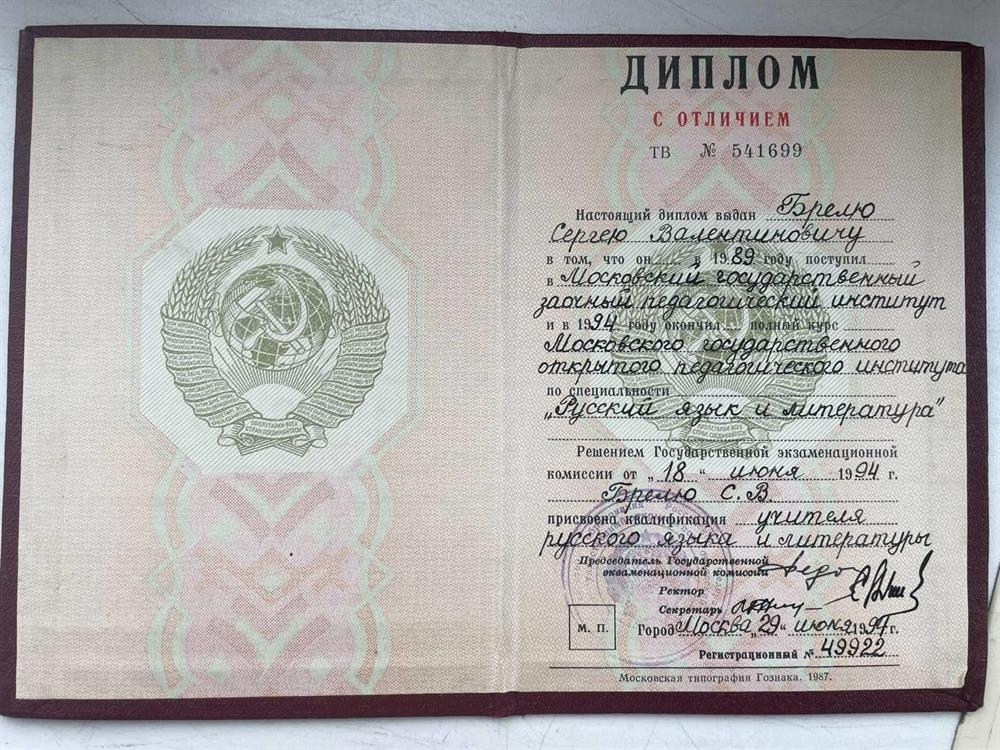 ДИПЛОМ
С ОТЛИЧИЕМ
ТВ № 541699
Настоящий диплом выдан Брелю
Сергею Валентиновичу
в том, что он в 1989 году поступил
в Московский государственный
заочный педагогический институт
и в 1994 году окончил полный курс
Московского государственного
открытого педагогического института
по специальности
„Русский язык и литература"
Решением Государственной экзаменационной
комиссии от „18" июня 1994 г.
Брелю С. В.
присвоена квалификация учителя
русского языка и литературы
Председатель Государственной
экзаменационной комиссии
Ректор
Секретарь
М. П.
Город Москва „29" июня 1994 г.
Регистрационный № 49922
Московская типография Гознака. 1987.
ПРОЛЕТАРИИ ВСЕХ
СТРАН, СОЕДИНЯЙТЕСЬ!